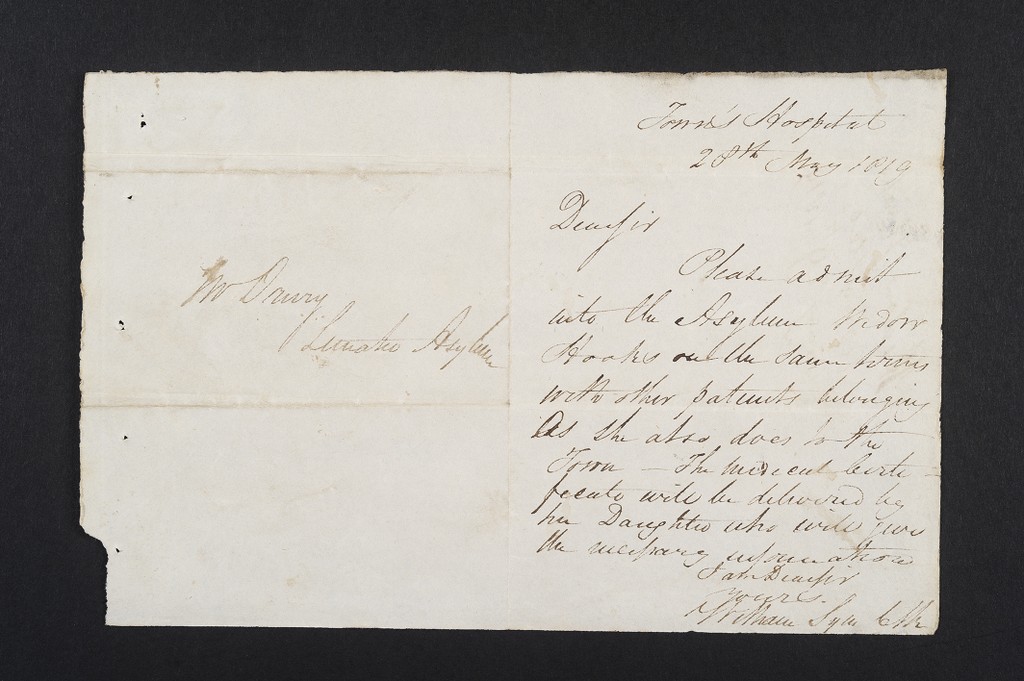 Mr Drury
Lunatic Asylum
Town's Hospital
28th May 1819
Dear Sir
Please admit
into the Asylum Widow
Hooks on the same terms
with other patients belonging
as she also does to the
Town – The medical Certi-
ficate will be delivered by
her Daughter who will give
the necessary information
I am Dear Sir
Yours.
William Sym Clk